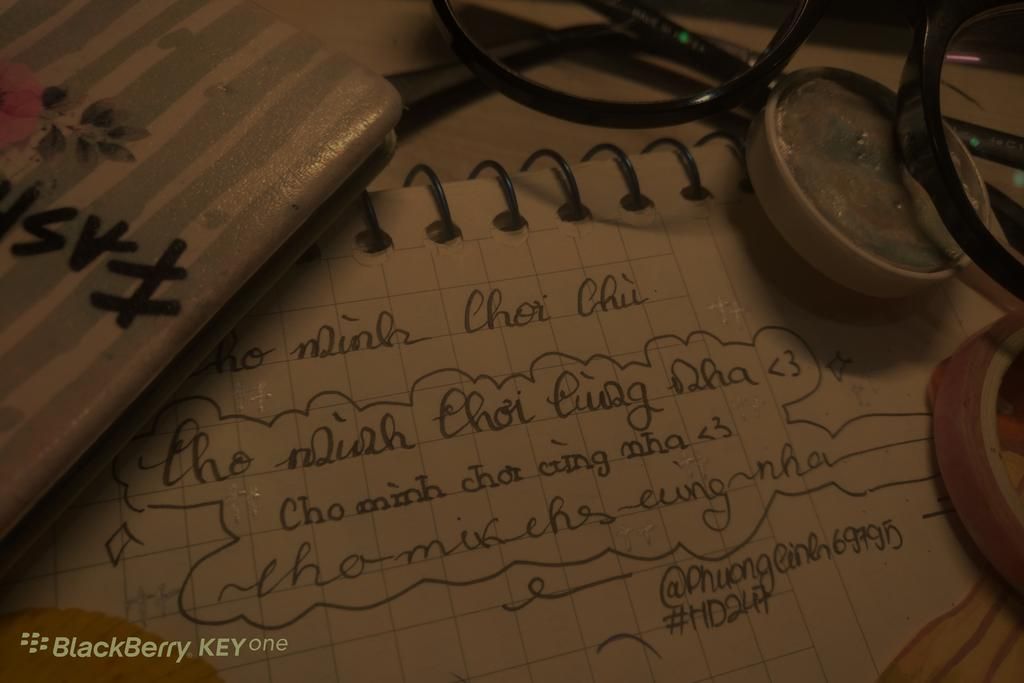 #FASH
Cho mình Chơi Chù
Cho mình Chơi Cùng Nha <3
Cho mình chơi cùng nha <3
cho mình chơi cùng nha
@Phuonglinh69795
#HD247
BlackBerry KEYone